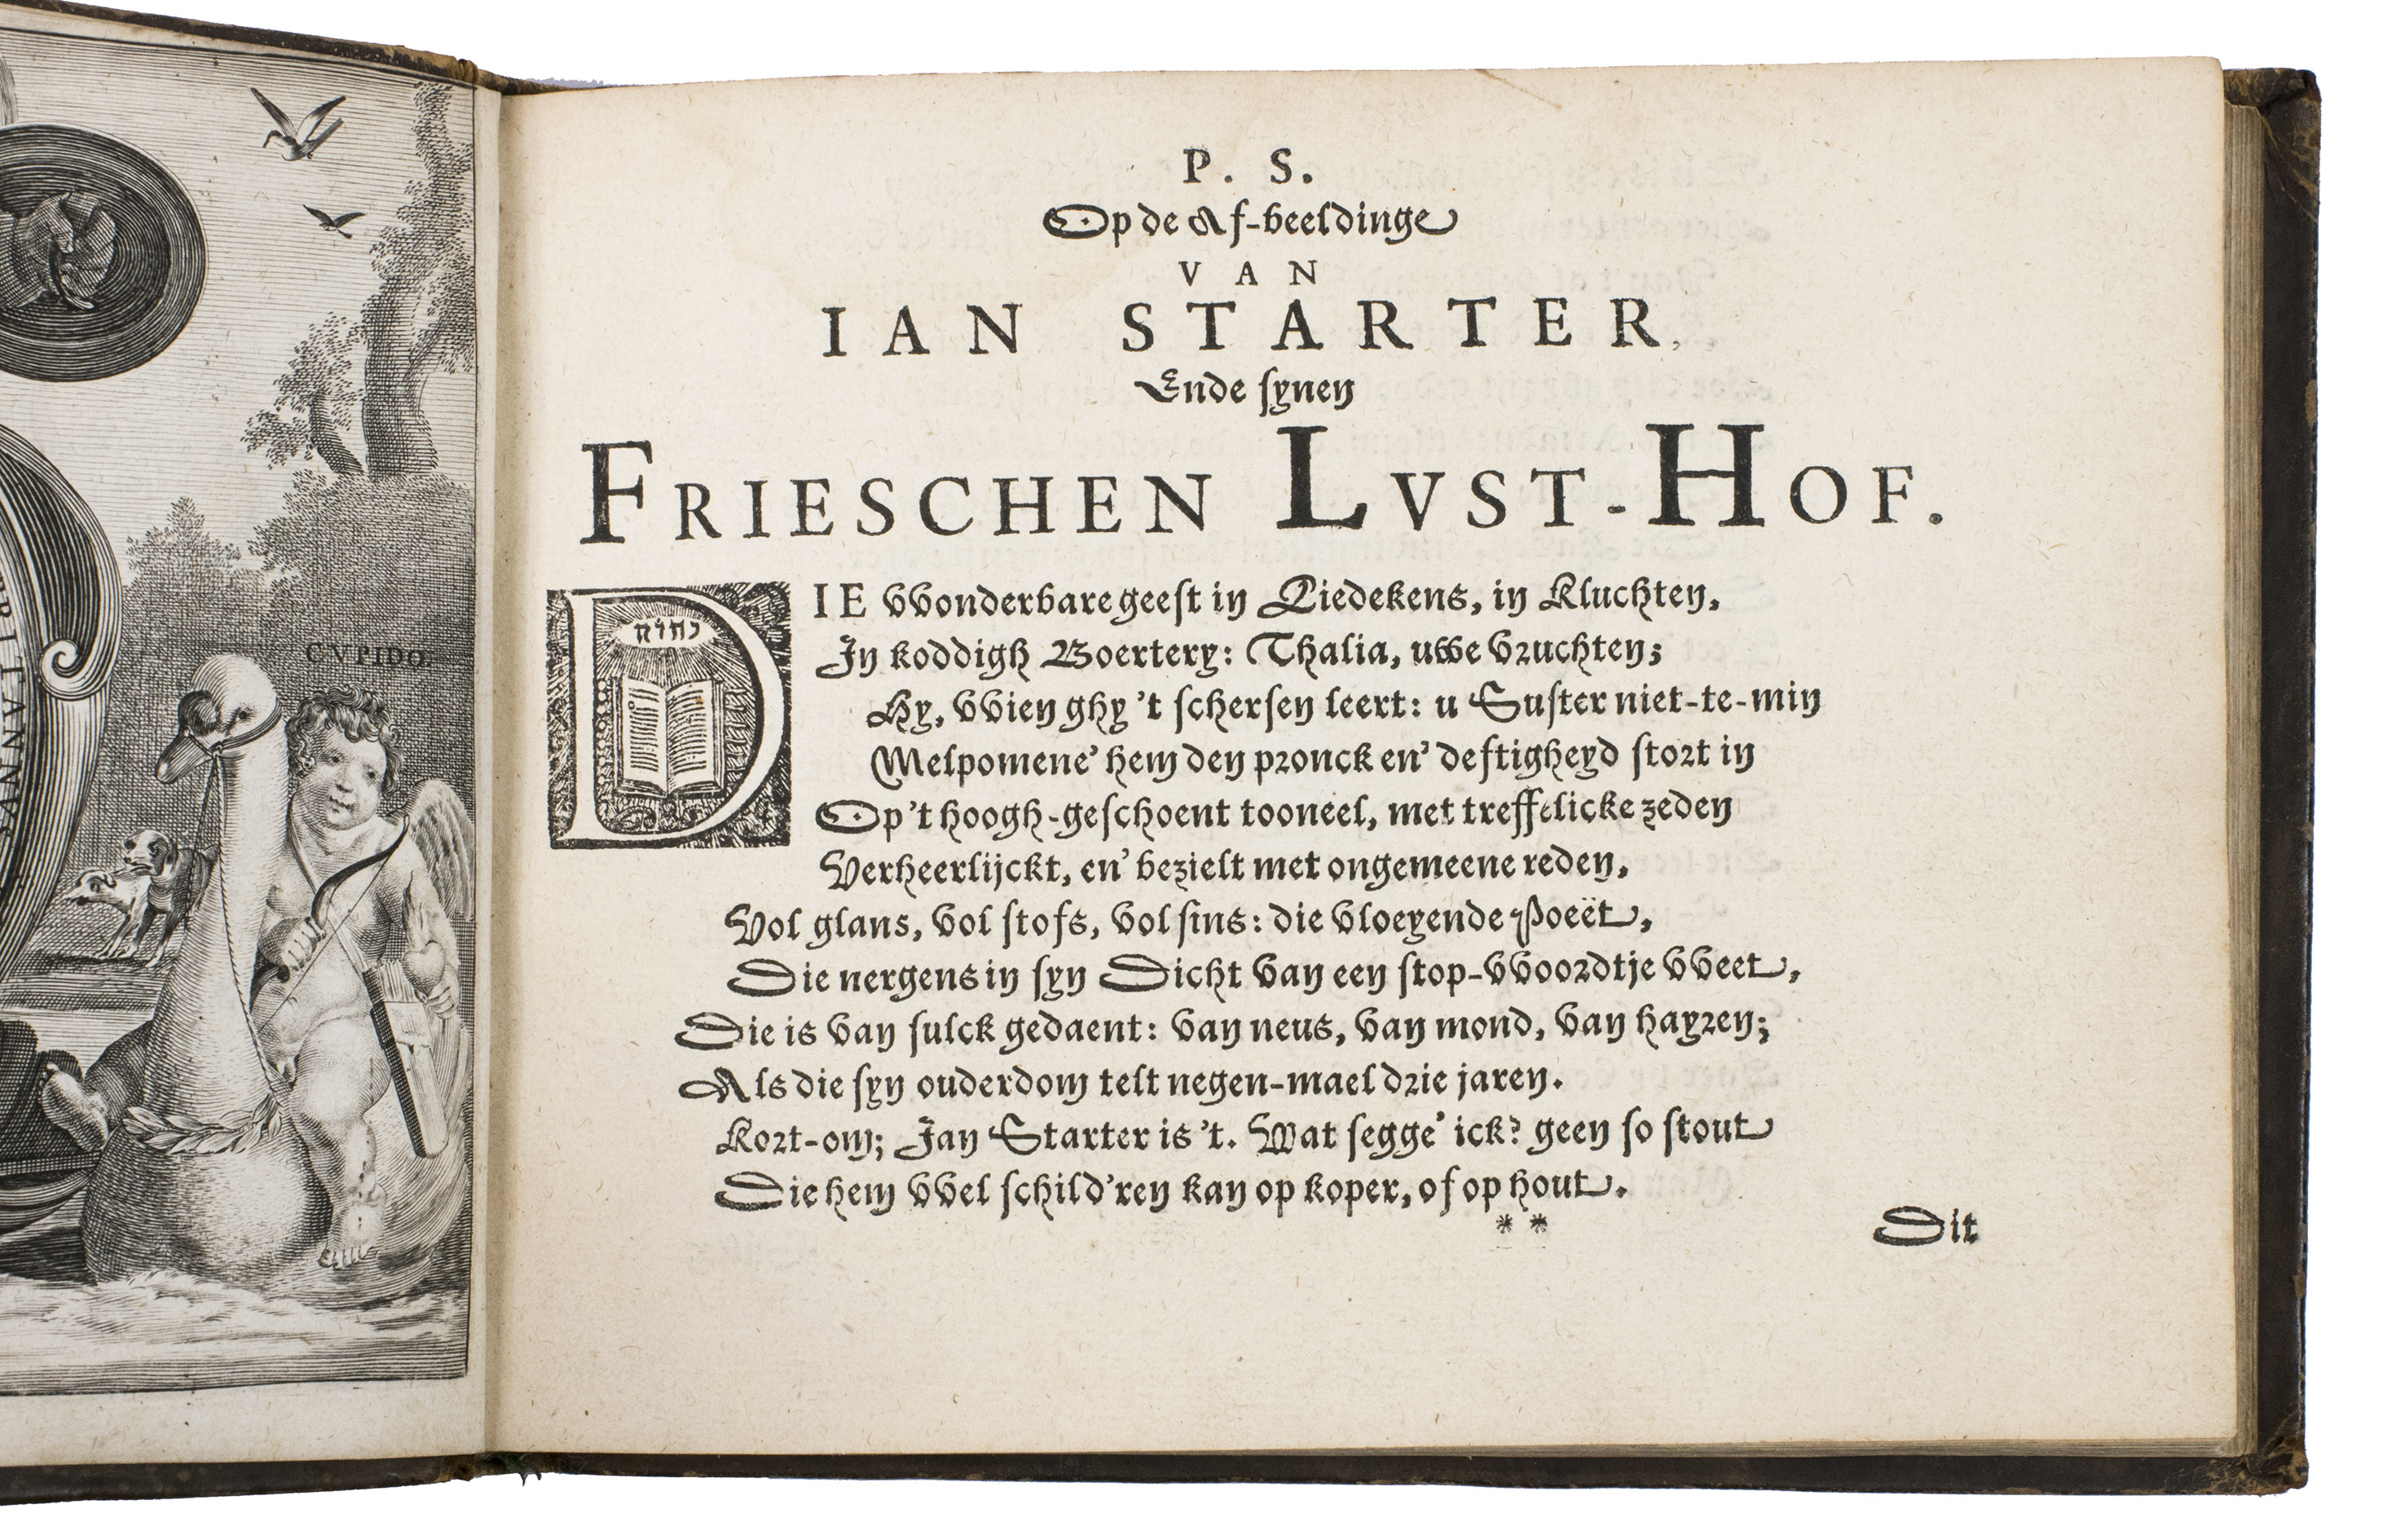 CVPIDO.
P. S.
Op de Af-beeldinge
VAN
IAN STARTER,
Ende synen
FRIESCHEN LVST-HOF.
DIE vvonderbare geest in Liedekens, in Kluchten,
In koddigh Boertery: Thalia, uwe vruchten;
Hy, vvien ghy 't schersen leert: u Suster niet-te-min
Melpomene' hem den pronck en' deftigheyd stort in
Op 't hoogh-geschoent tooneel, met treffelicke zeden
Verheerlijckt, en' bezielt met ongemeene reden,
Vol glans, vol stofs, vol sins: die vloeyende Poeët,
Die nergens in syn Dicht van een stop-vvoordtje vveet,
Die is van sulck gedaent: van neus, van mond, van hayren;
Als die syn ouderdom telt negen-mael drie jaren.
Kort-om; Jan Starter is 't. Wat segge' ick? geen so stout
Die hem vvel schild'ren kan op koper, of op hout.
** Dit